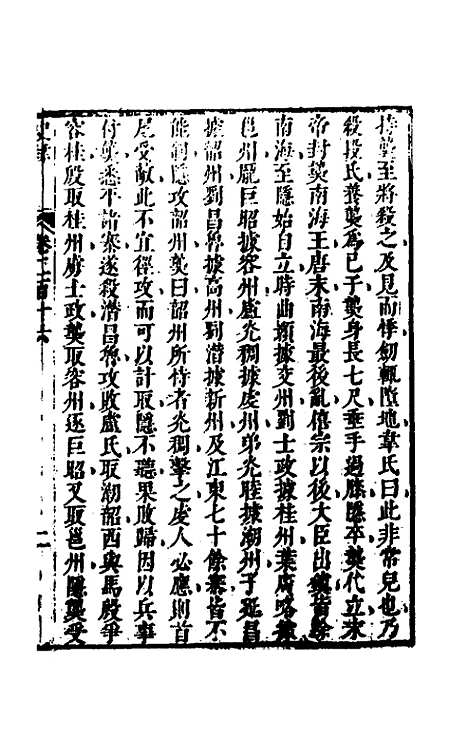 持䶮至將殺之及見而悸劒輒墮地韋氏曰此非常兒也乃
殺段氏養䶮爲己子䶮身長七尺垂手過膝隱卒䶮代立末
帝封䶮南海王唐末南海最後亂僖宗以後大臣出鎮皆餘
南海至隱始自立時曲顥據交州劉士政據桂州葉廣略據
邕州龐巨昭據容州盧光稠據虔州弟光睦據潮州子延昌
據韶州劉昌魯據高州劉潛據新州及江東七十餘寨皆不
能制隱攻韶州䶮曰韶州所恃者光稠擊之虔人必應則首
尾受敵此不宜徑攻而可以計取隱不聽果敗歸因以兵事
付䶮悉平諸寨遂殺潛昌魯攻敗盧氏取潮韶西與馬殷爭
容桂殷取桂州虜士政䶮取容州逐巨昭又取邕州隱䶮受
卷二百十六